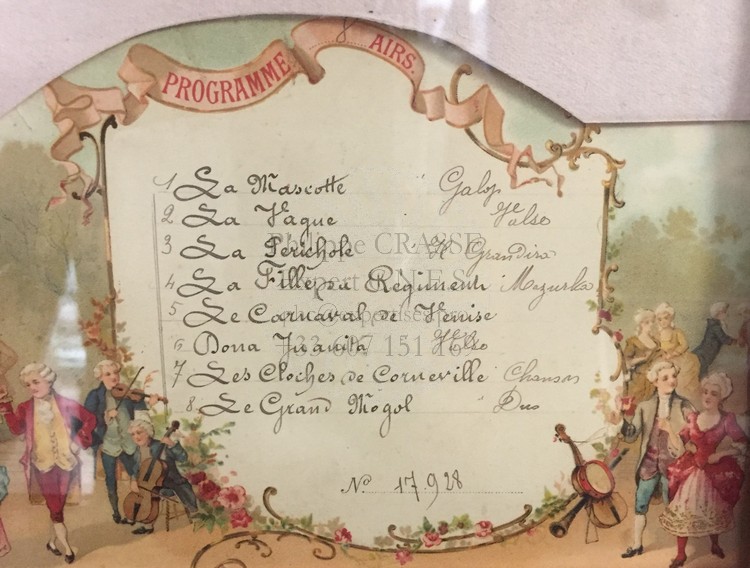 PROGRAMME 8 AIRS.
1 La Mascotte " Galop
2 La Vague Valse
3 La Périchole " Il Grandira
4 La Fille du Régiment Mazurka
5 Le Carnaval de Venise
6 Dona Juanita Valse
7 Les Cloches de Corneville Chanson
8 Le Grand Mogol " Duo
No 17.928
Philippe CRASSE
Expert C.N.E.S
+33 607 151 169